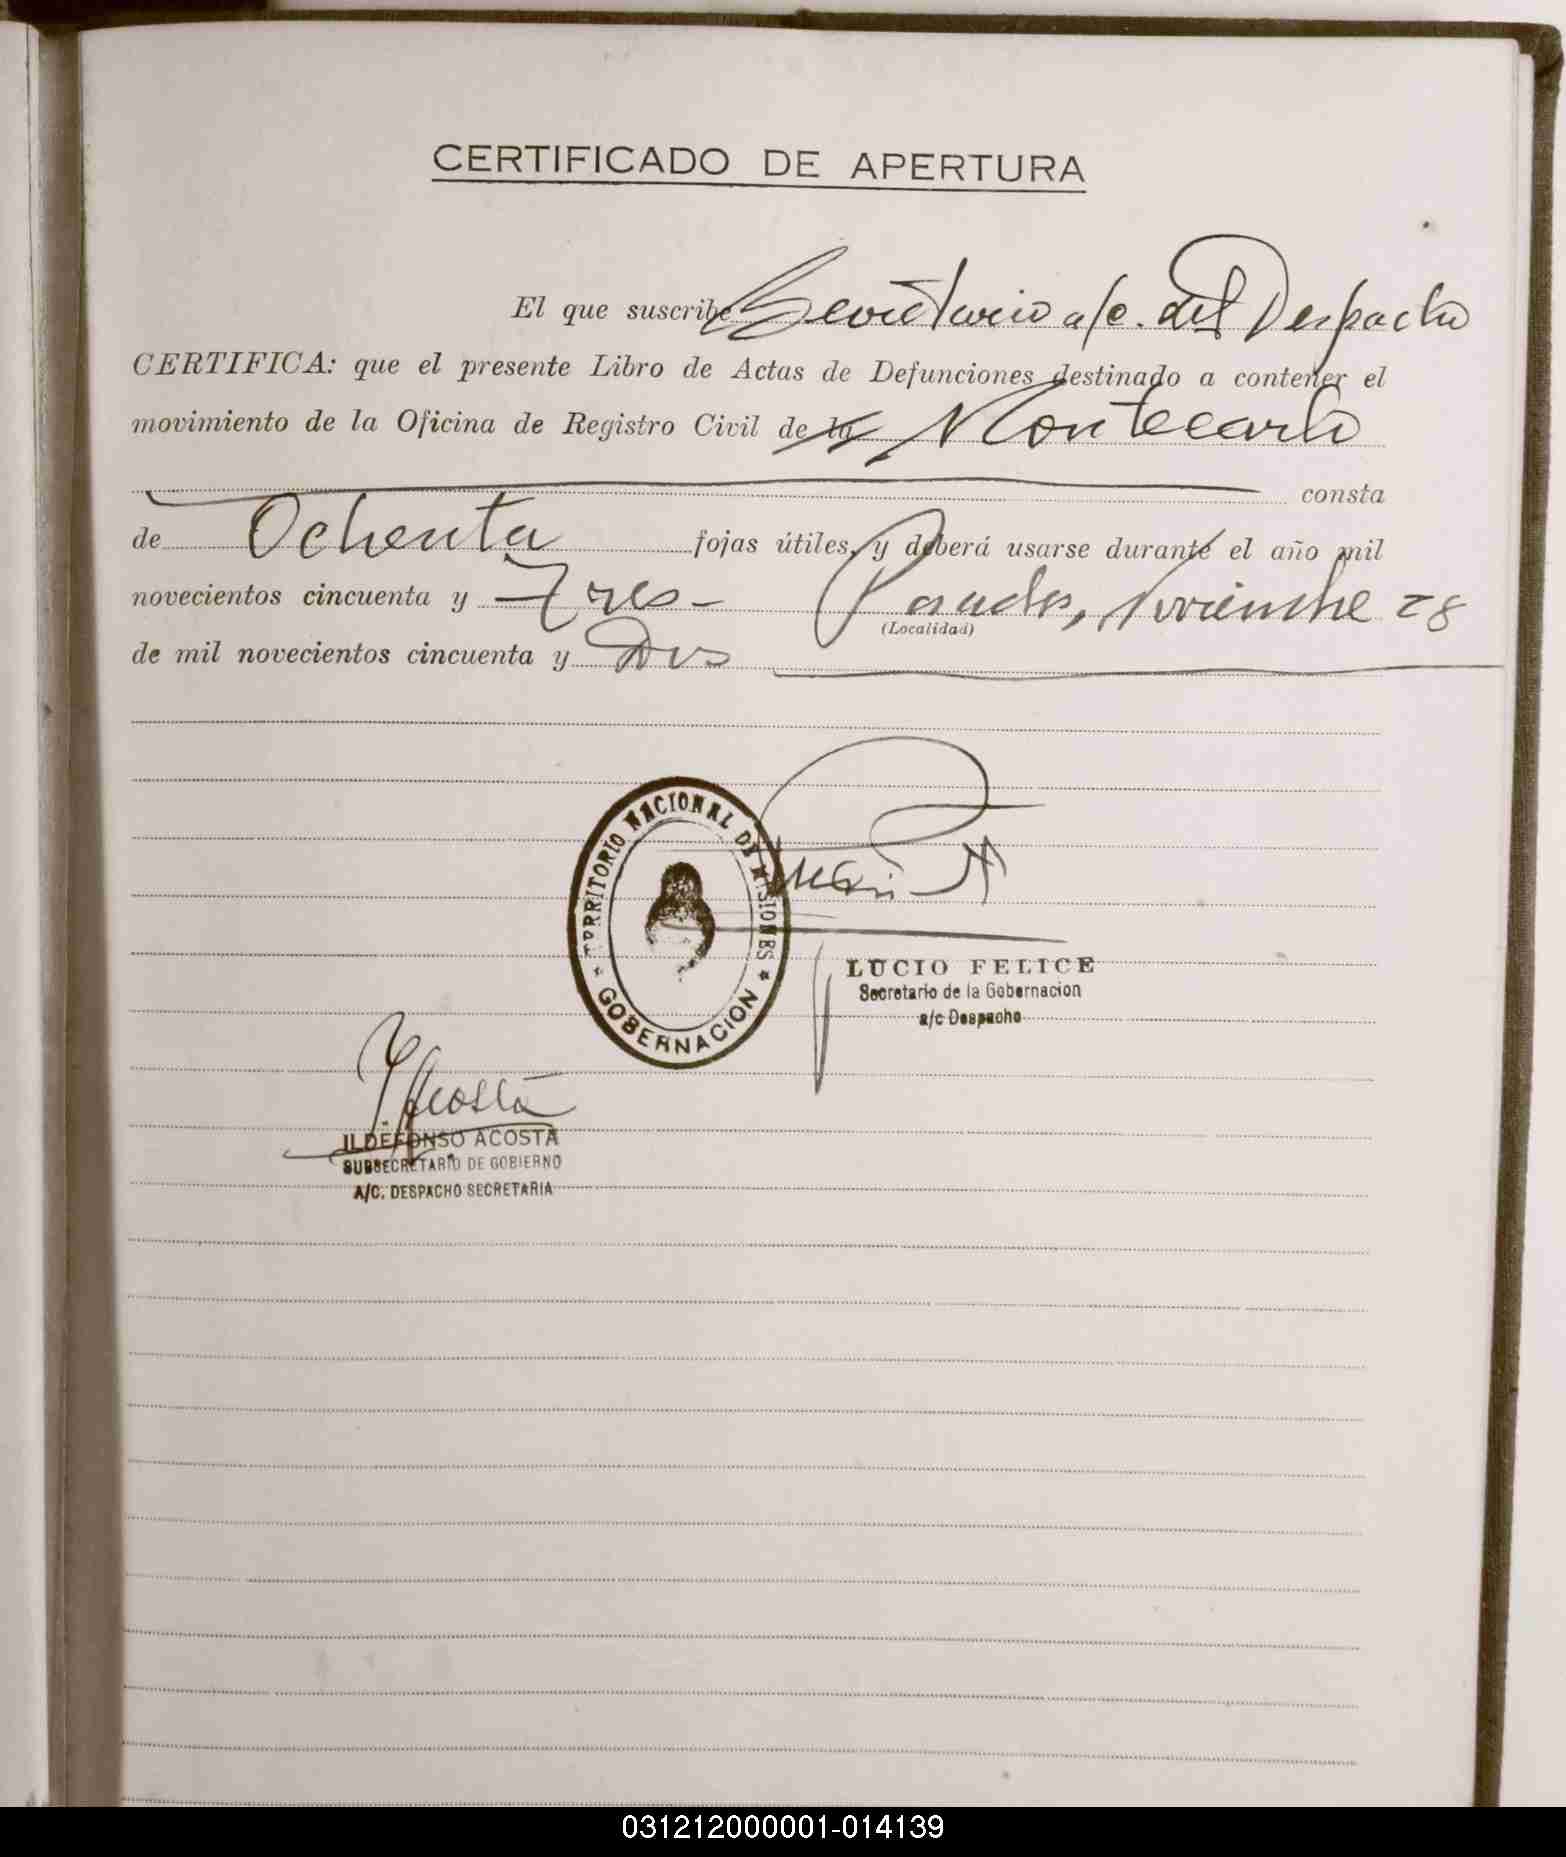 CERTIFICADO DE APERTURA
El que suscribe Secretario a/c. del Despacho
CERTIFICA: que el presente Libro de Actas de Defunciones destinado a contener el
movimiento de la Oficina de Registro Civil de la Montecarlo
consta
de Ochenta fojas útiles, y deberá usarse durante el año mil
novecientos cincuenta y Tres - Posadas, Noviembre 28
(Localidad)
de mil novecientos cincuenta y Dos
TERRITORIO NACIONAL DE MISIONES
* GOBERNACION *
LUCIO FELICE
Secretario de la Gobernacion
a/c Despacho
Acosta
ILDEFONSO ACOSTA
SUBSECRETARIO DE GOBIERNO
A/C. DESPACHO SECRETARIA
031212000001-014139